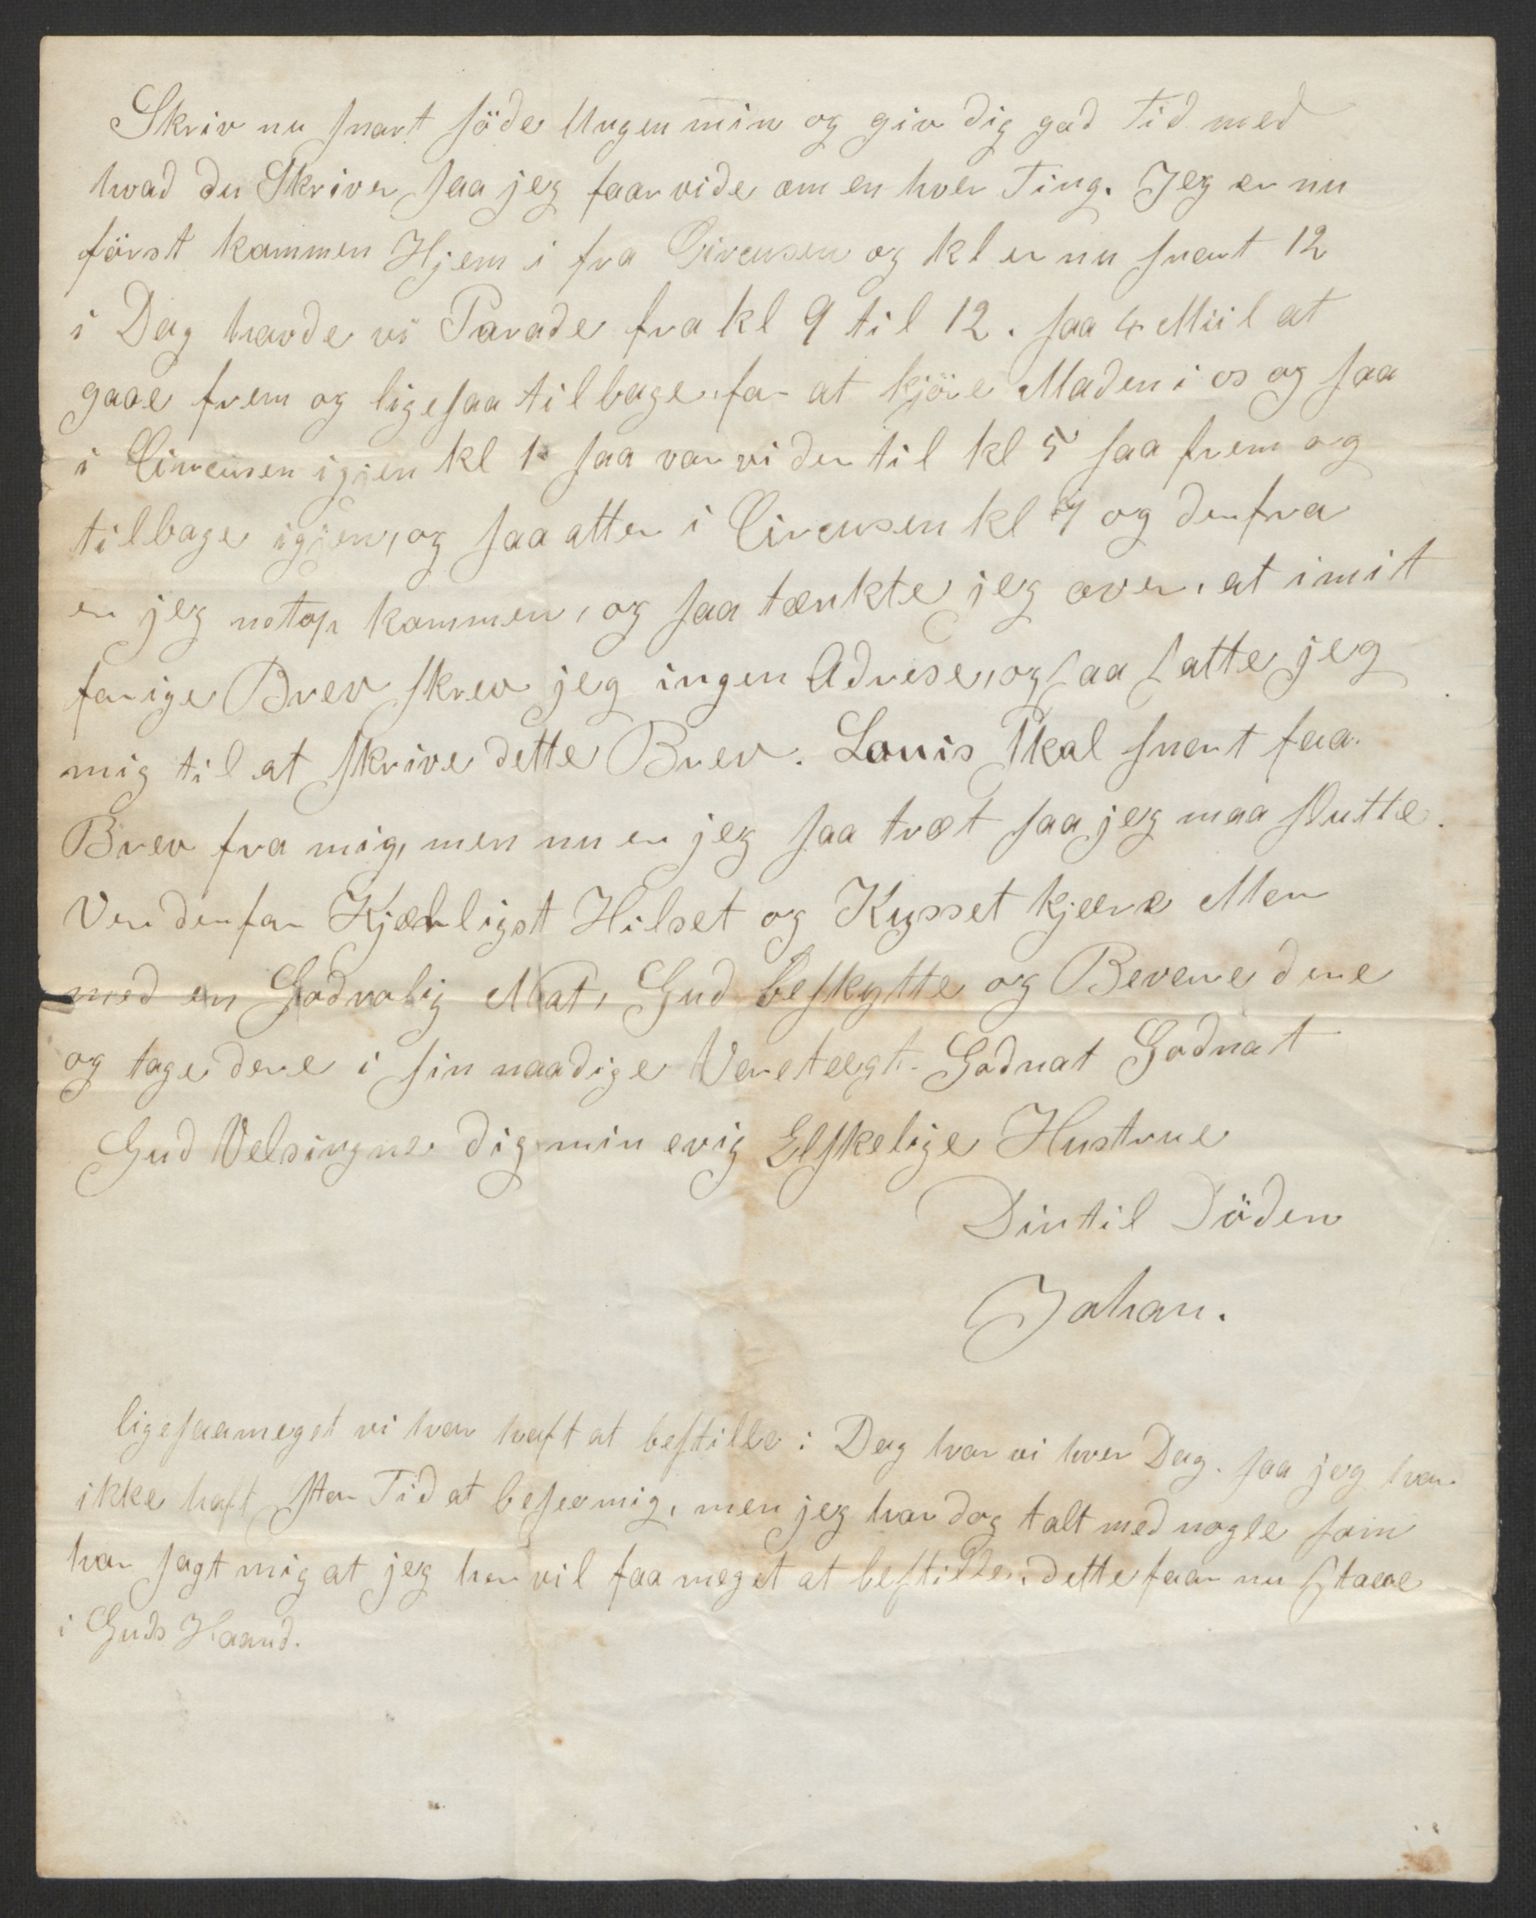 Skriv nu snart söde Ungen min og giv dig god Tid med
hvad du Skriver, saa jeg faar vide om en hver Ting. Jeg er nu
först kommen Hjem i fra Circusen og kl er nu snart 12
i Dag havde vi Parade fra kl 9 til 12. saa 4 Miil at
gaae frem og ligesaa tilbage, for at kjöre Maden i os og saa
i Circusen igjen kl 1 saa var vi der til kl 5 saa frem og
tilbage igjen, og saa atter i Circusen kl 7 og derfra
er jeg netop kommen, og saa tænkte jeg over, at i mit
forige Brev skrev jeg ingen Adrese, og saa satte jeg
mig til at skrive dette Brev. Louis Skal snart faa
Brev fra mig, men nu er jeg saa træt saa jeg maa slutte.
Ver derfor Kjærligst Hilset og Kysset kjære Mer
med en Godrolig Nat, Gud beskytte og Bevere dere
og tage dere i sin naadige Veretægt. Godnat Godnat
Gud Velsingne dig min evig Elskelige Hustrue
Din til Döden
Johan.
ligesaameget vi har haft at bestille i Dag har vi hver Dag. saa jeg har
ikke haft stor Tid at besee mig, men jeg har dog talt med nogle som
har sagt mig at jeg her vil faa meget at bestille. dette faar nu staae
i Guds Haand.